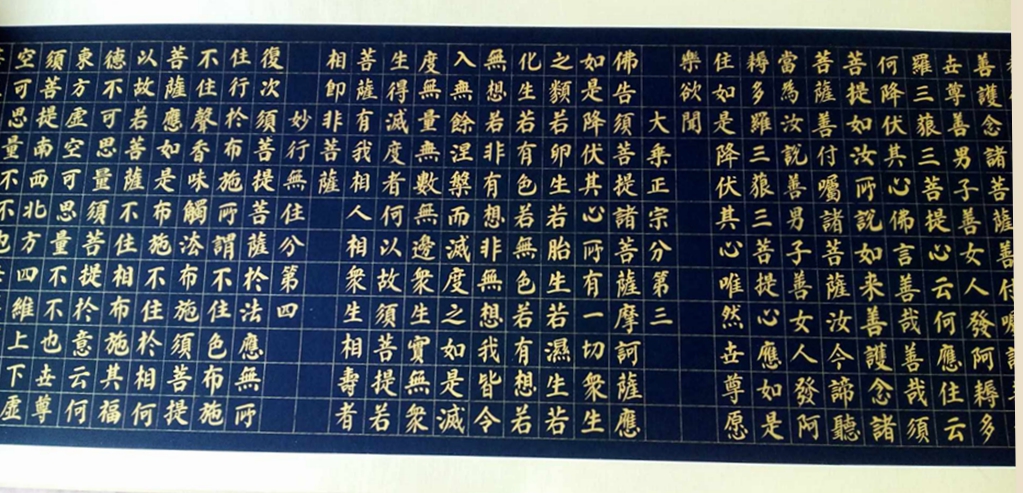 善護念諸菩薩善付囑
世尊善男子善女人發阿耨多
羅三藐三菩提心云何應住云
何降伏其心佛言善哉善哉須
菩提如汝所說如来善護念諸
菩薩善付囑諸菩薩汝今諦聽
當為汝說善男子善女人發阿
耨多羅三藐三菩提心應如是
住如是降伏其心唯然世尊愿
樂欲聞
大乘正宗分第三
佛告須菩提諸菩薩摩訶薩應
如是降伏其心所有一切衆生
之類若卵生若胎生若濕生若
化生若有色若無色若有想若
無想若非有想非無想我皆令
入無餘涅槃而滅度之如是滅
度無量無數無邊衆生實無衆
生得滅度者何以故須菩提若
菩薩有我相人相衆生相壽者
相即非菩薩
妙行無住分第四
復次須菩提菩薩於法應無所
住行於布施所謂不住色布施
不住聲香味觸法布施須菩提
菩薩應如是布施不住於相何
以故若菩薩不住相布施其福
德不可思量須菩提於意云何
東方虛空可思量不不也世尊
須菩提南西北方四維上下虛
空可思量不不也